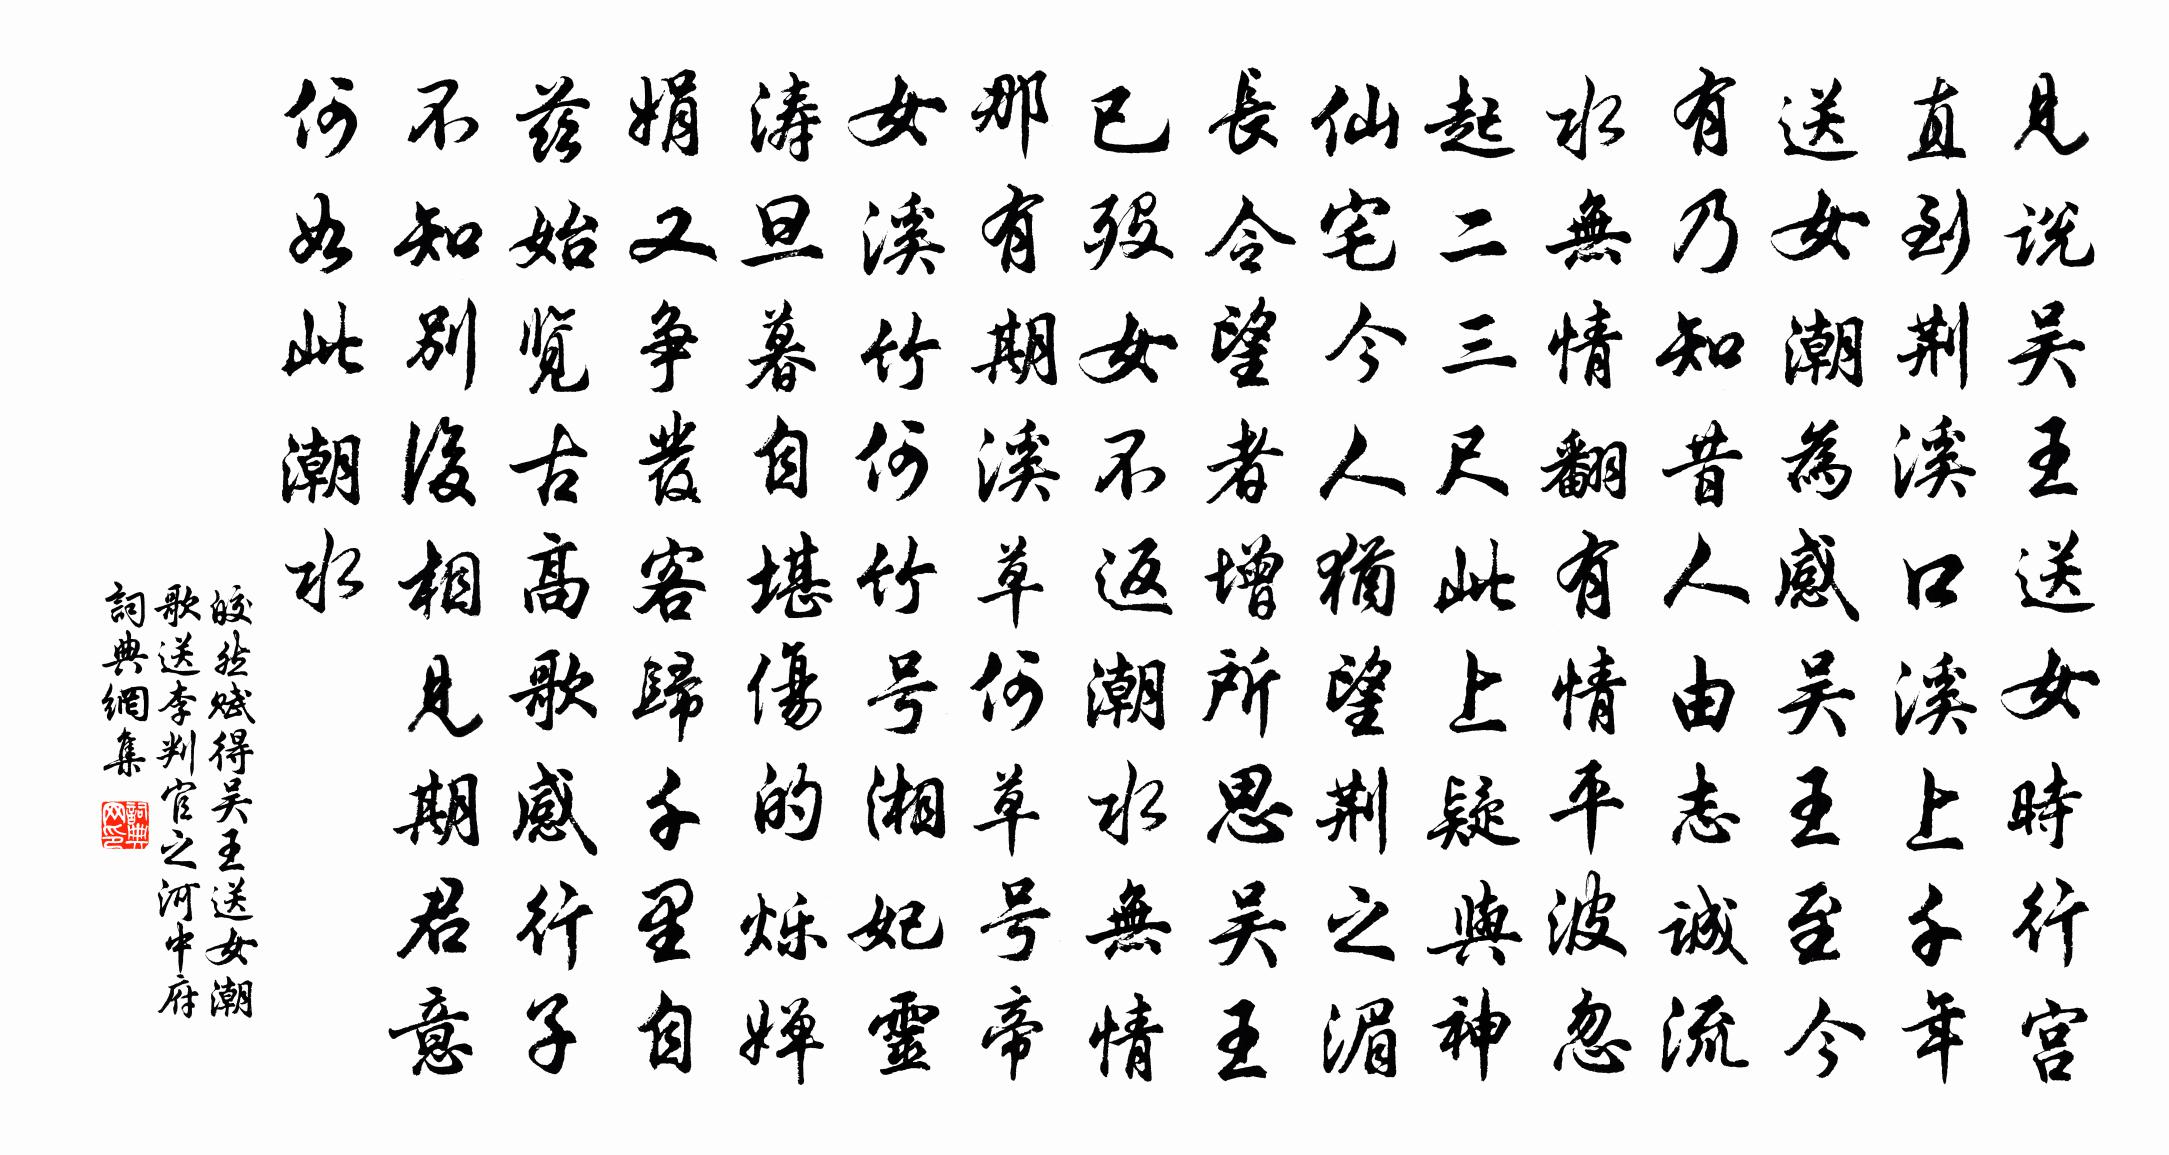 見説吴王送女時行宫
直到荆溪口溪上千年
送女潮為感吴王至今
有乃知昔人由志誠流
水無情翻有情平波忽
起二三尺此上疑與神
仙宅今人猶望荆之湄
長令望者增所思吴王
已殁女不返潮水無情
那有期溪草何草号帝
女溪竹何竹号湘妃靈
涛旦暮自堪傷的烁婵
娟又争發客歸千里自
兹始览古高歌感行子
不知别後相見期君意
何如此潮水
皎然赋得吴王送女潮
歌送李判官之河中府
詞典網集
詞典網印